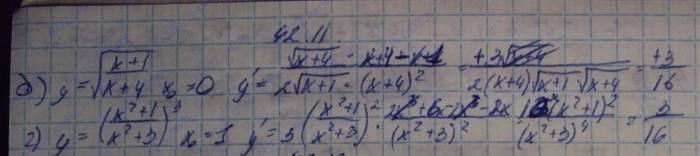 42.11.
б) y = √((x+1)/(x+4)) x₀ = 0 y' = (√(x+4) · x+4-x-1)/(2√(x+1) · (x+4)²) = (+3√(x+4))/(2(x+4)√(x+1) √(x+4)) = +3/16
г) y = ((x²+1)/(x²+3))³ x₀ = 1 y' = 3((x²+1)/(x²+3))² · (2x³+6x-2x³-2x)/(x²+3)² (x²+1)²/(x²+3)⁴ = 3/16